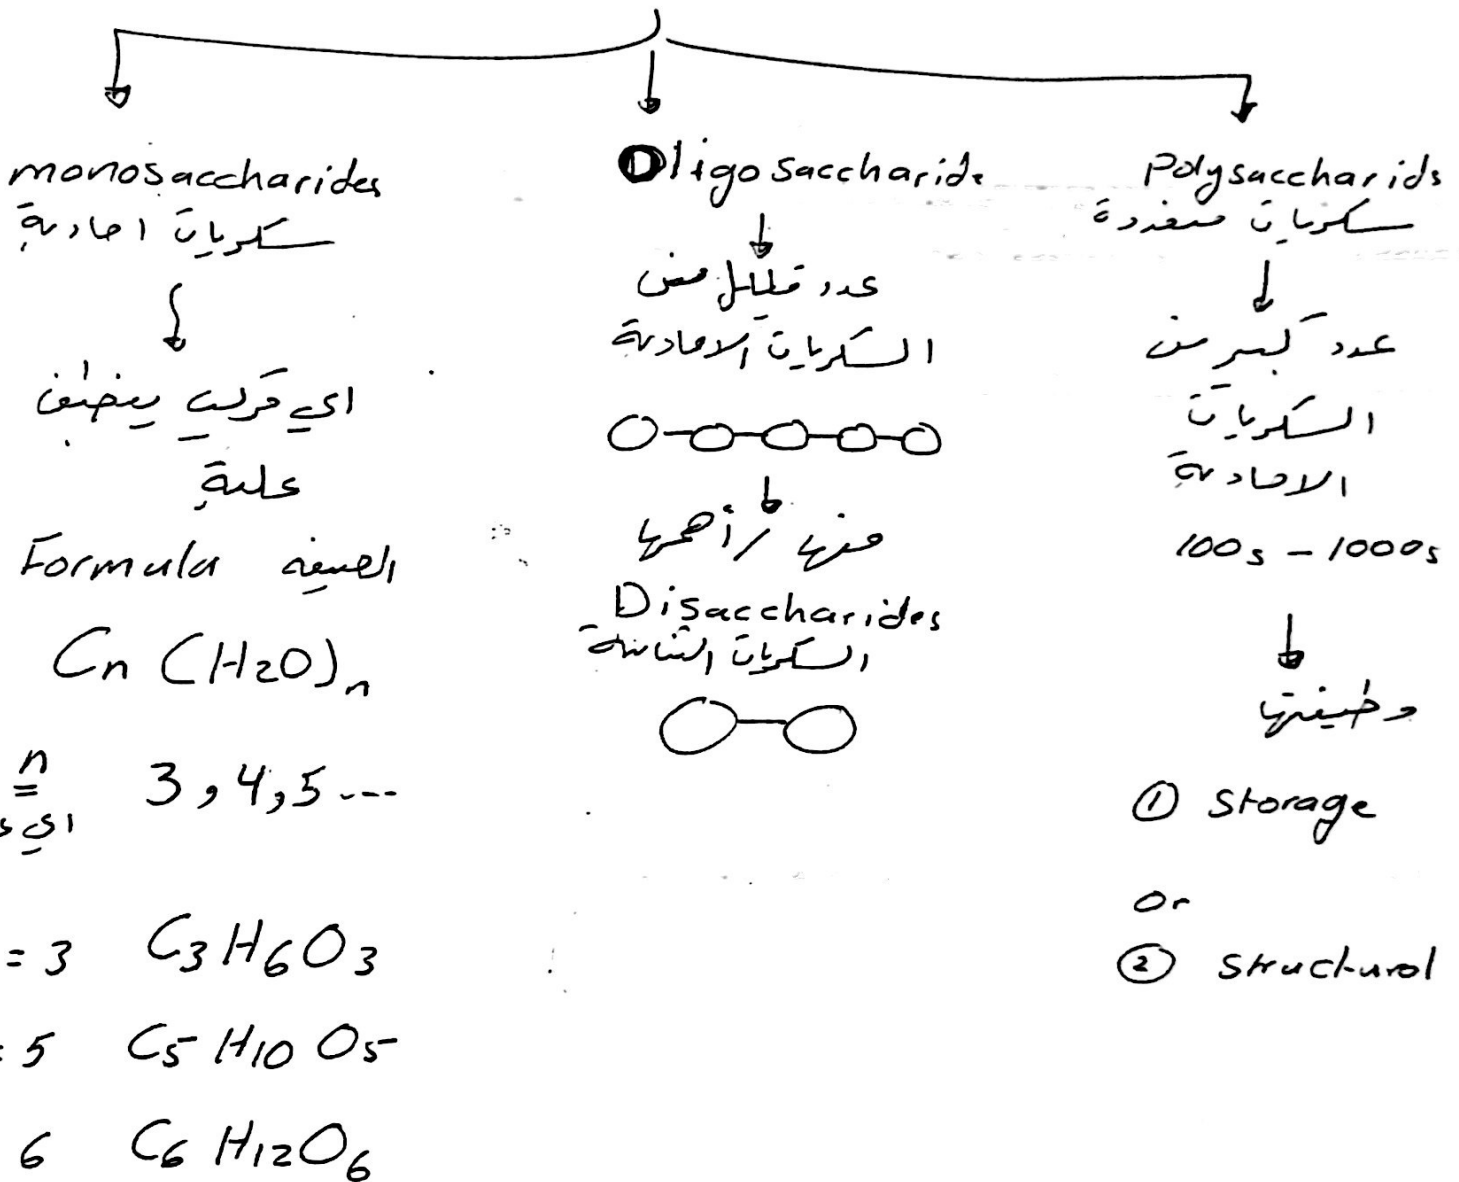 monosaccharides
سكريات احادية
اي مركب ينطبق
علية
Formula الصيغه
Cn (H2O)n
n 3,4,5 ---
اي
= 3 C3H6O3
= 5 C5H10O5
6 C6H12O6
Oligosaccharide
عدد قليل من
السكريات الاحادية
منها / أهمها
Disaccharides
السكريات الثنائية
Polysaccharids
سكريات متعددة
عدد كبير من
السكريات
الاحادية
100s - 1000s
وظيفتها
① Storage
Or
② Structural